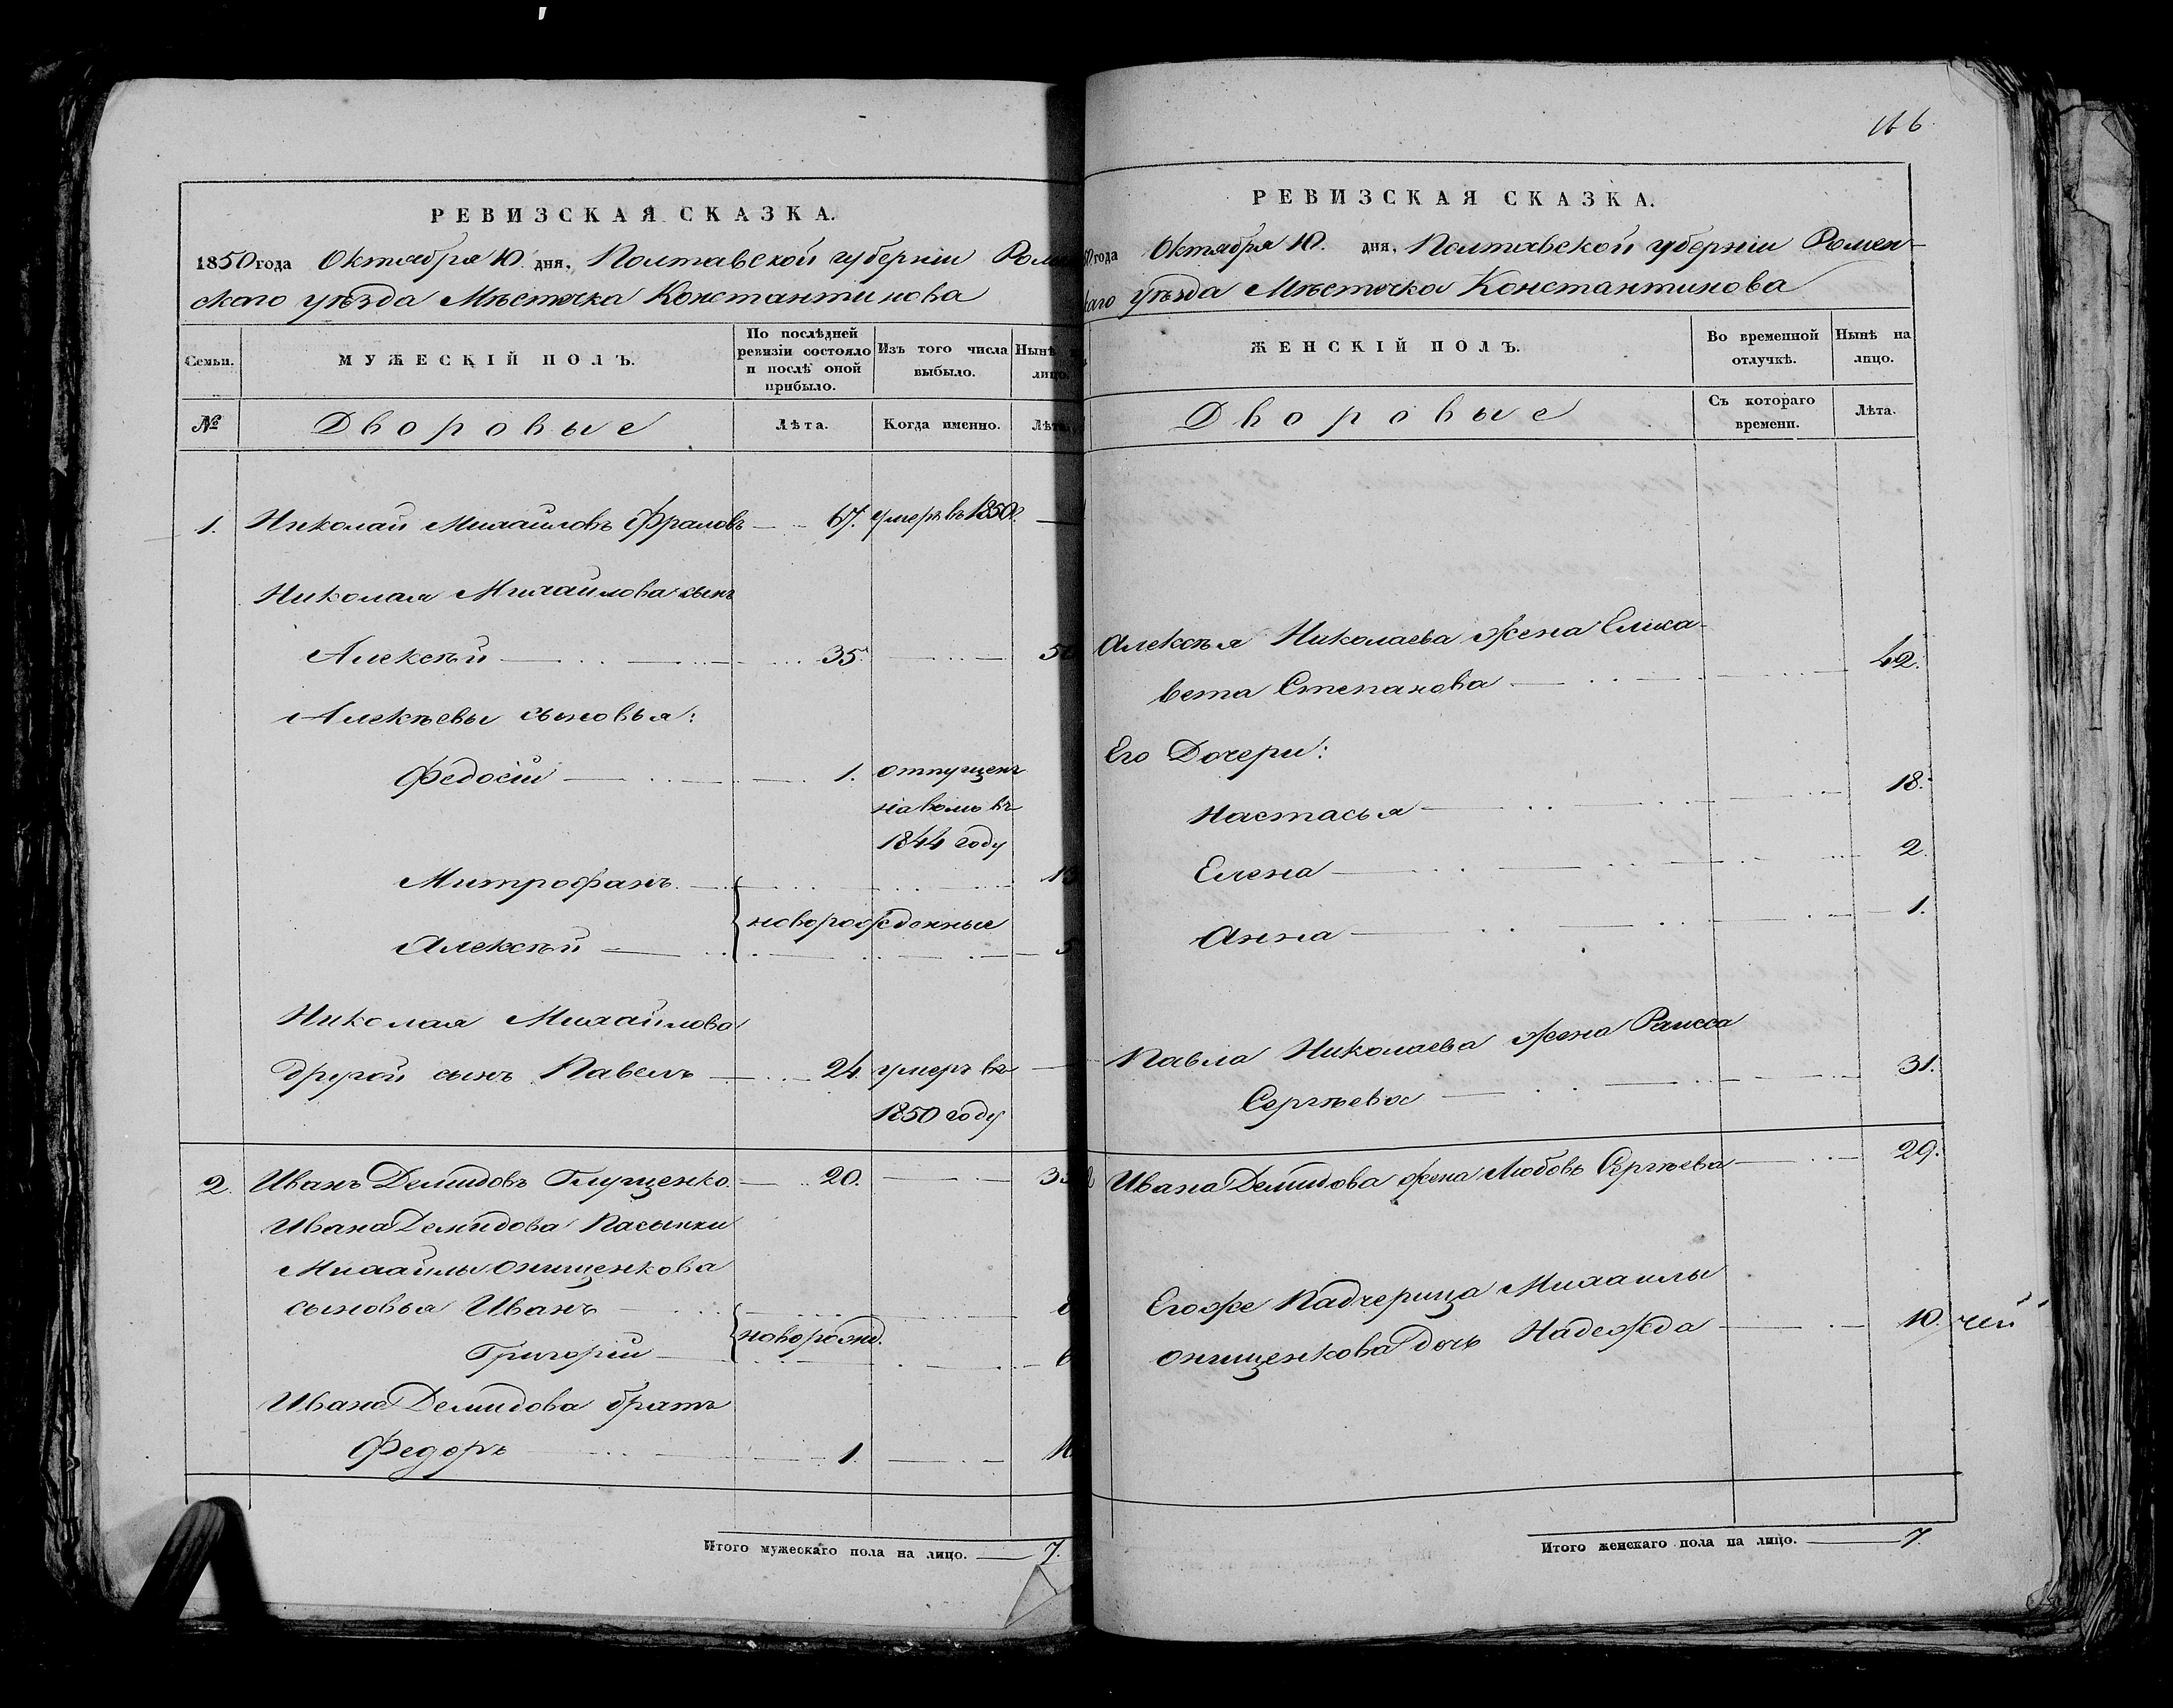 РЕВИЗСКАЯ СКАЗКА.
1850 года Октября 10. дня, Полтавской губерніи
ского уѣзда Мѣстечка Константинова
Семьи.
МУЖЕСКІЙ ПОЛЪ.
По послѣдней ревизіи состояло и послѣ оной прибыло.
Изъ того числа выбыло.
Нынѣ
№
Дворовые
Лѣта.
Когда именно.
1. Николай Михайловъ Фраловъ 67. умеръ въ 1850.
Николая Михайлова сынъ
Алексѣй 35.
Алексѣевы сыновья:
Федосій 1. отпущенъ
на волю въ
1844 году
Митрофанъ
новорожденные
Алексѣй
Николая Михайлова
другой сынъ Павелъ 24. умеръ въ
1850 году
2. Иванъ Демидовъ Глущенко 20.
Ивана Демидова Пасынки
Михайлы Онищенкова
сыновья Иванъ
новорожд.
Григорій
Ивана Демидова братъ
Федоръ 1.
Итого мужескаго пола на лицо. 7.
РЕВИЗСКАЯ СКАЗКА.
года Октября 10. дня, Полтавской губерніи Ромен-
уѣзда Мѣстечка Константинова
ЖЕНСКІЙ ПОЛЪ.
Во временной отлучкѣ.
Нынѣ на лицо.
Дворовые
Съ котораго времени.
Лѣта.
Алексѣя Николаева жена Елиза-
вета Степанова 42.
Его Дочери:
Настасья 18.
Елена 2.
Анна 1.
Павла Николаева жена Раисса
Сергѣева 31.
Ивана Демидова жена Любовь Сергѣева 29.
Егоже Падчерица Михаилы
Онищенкова дочь Надежда 10.
Итого женскаго пола на лицо. 7.